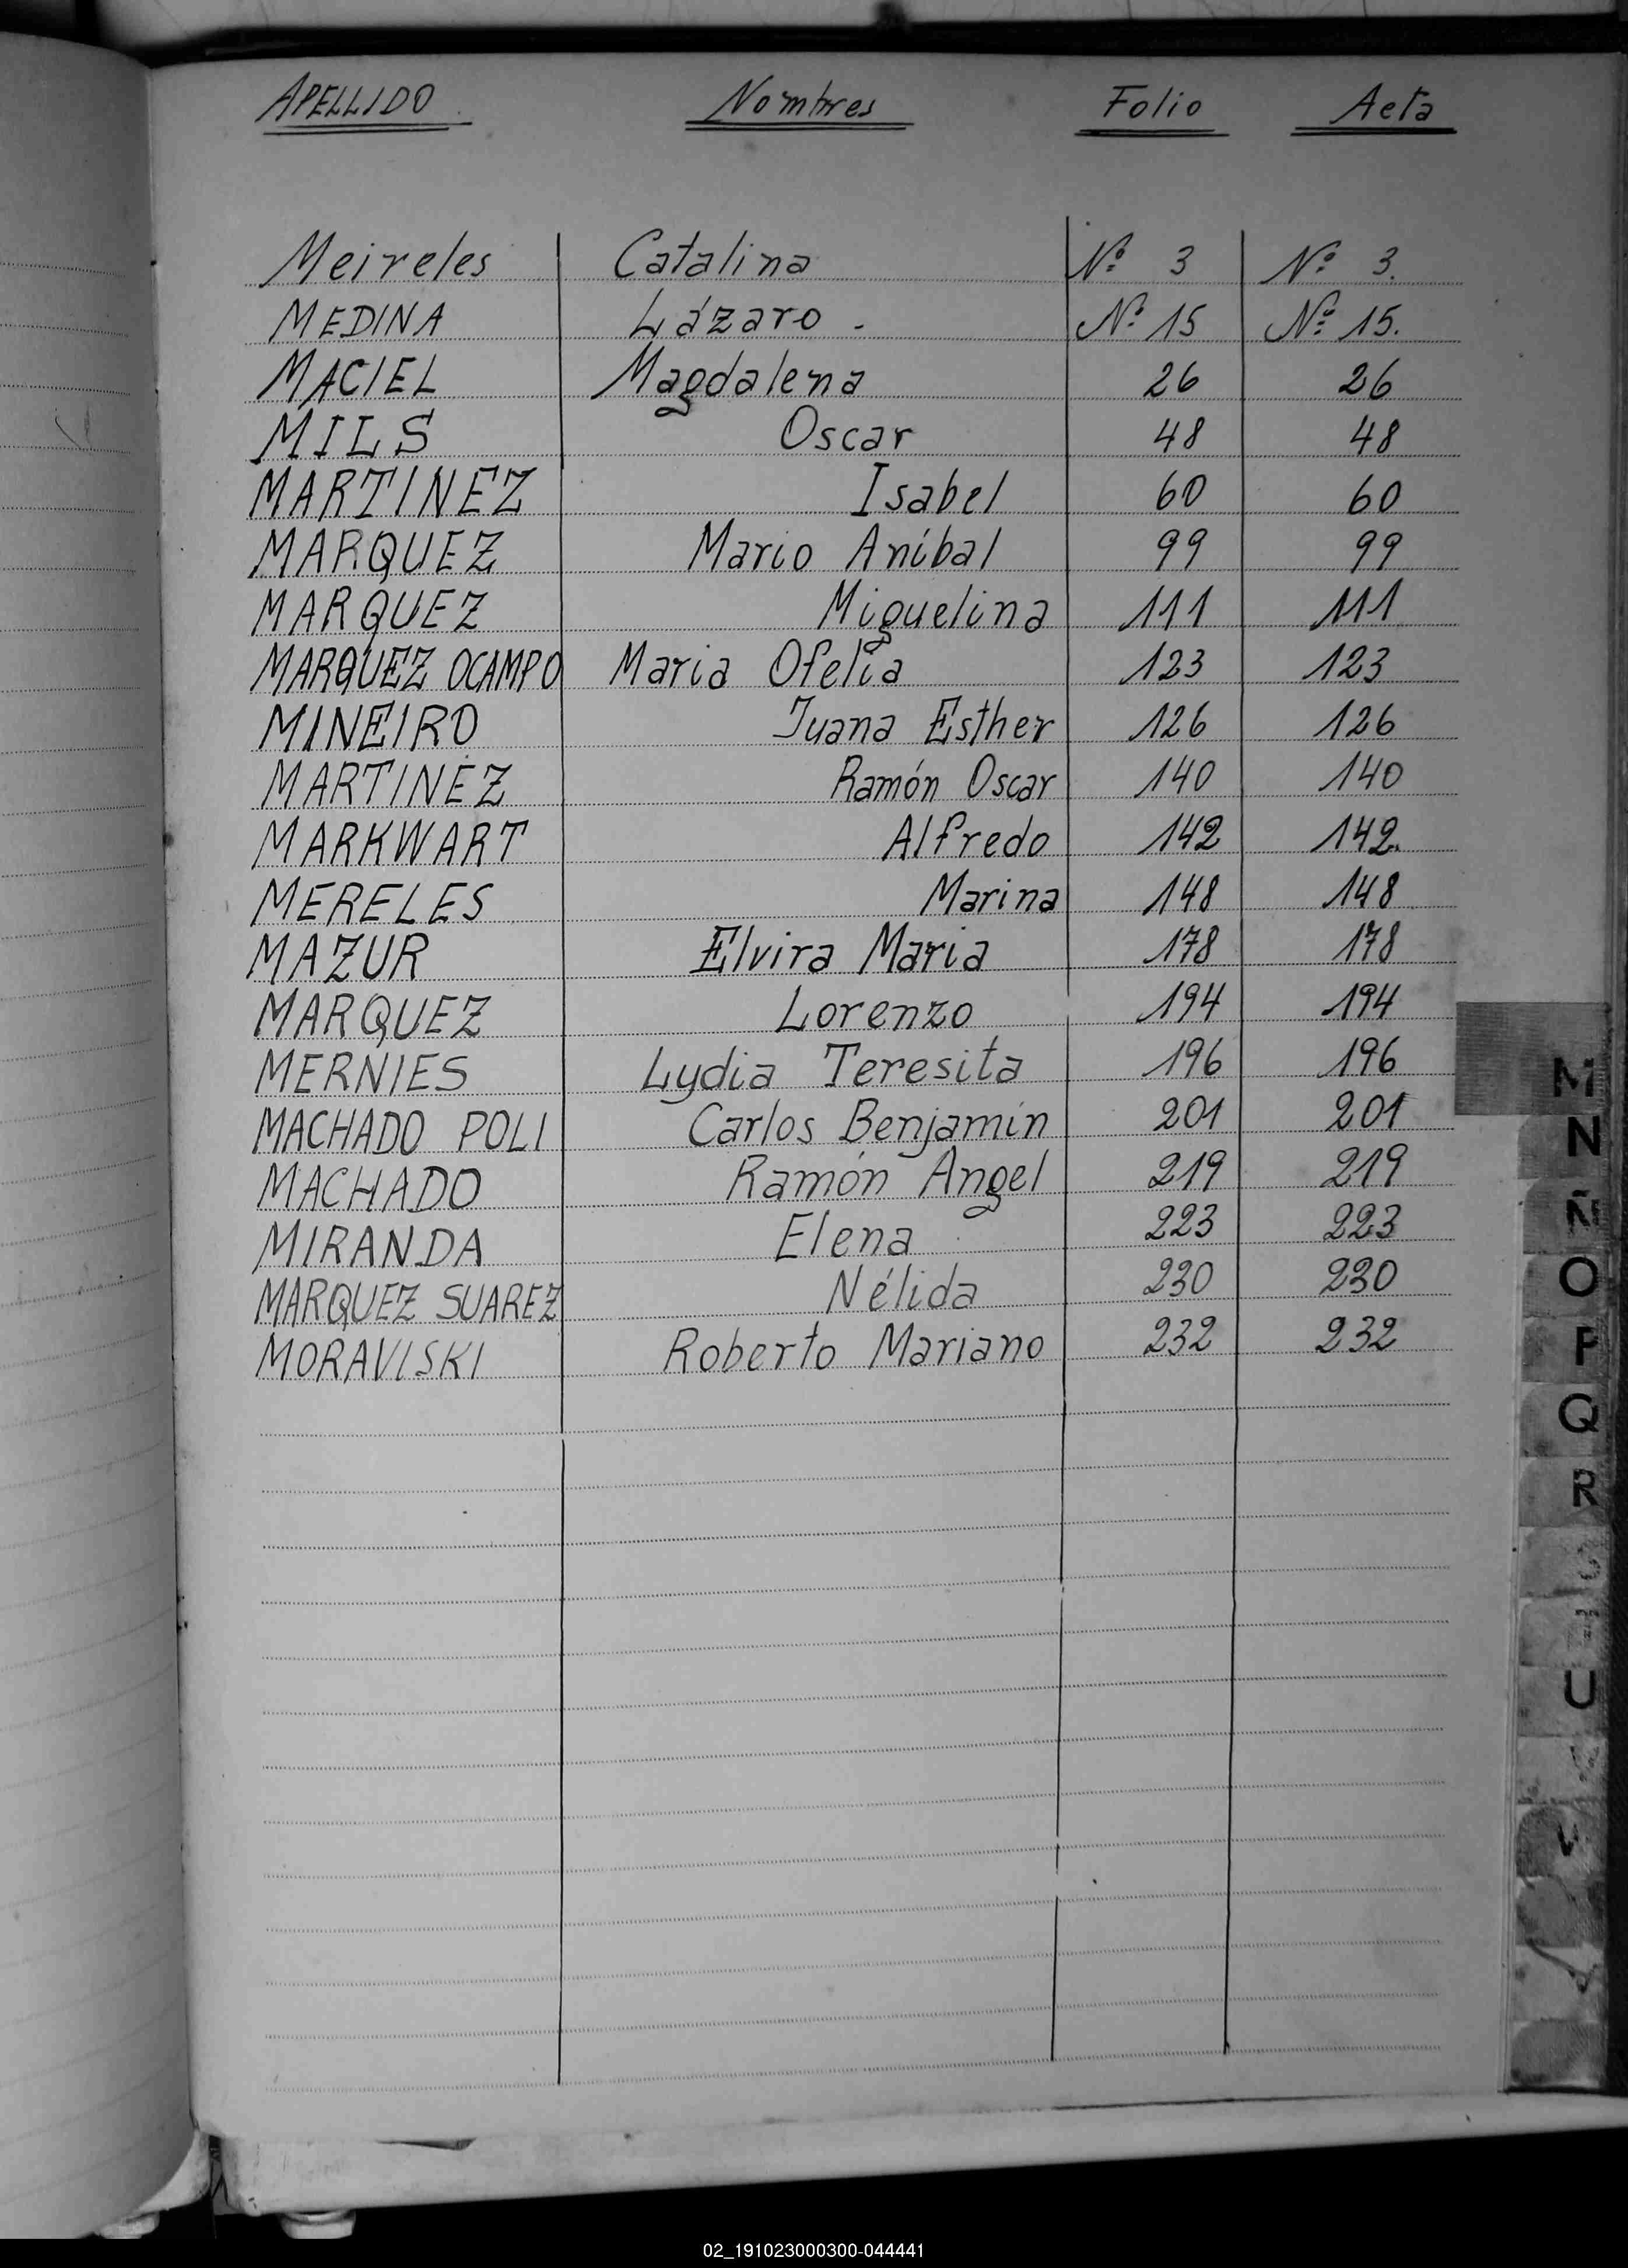 APELLIDO Nombres Folio Acta
Meireles Catalina Nº 3 Nº 3.
MEDINA Lázaro. Nº 15 Nº 15.
MACIEL Magdalena 26 26
MILS Oscar 48 48
MARTINEZ Isabel 60 60
MARQUEZ Mario Aníbal 99 99
MARQUEZ Miguelina 111 111
MARQUEZ OCAMPO Maria Ofelia 123 123
MINEIRO Juana Esther 126 126
MARTINEZ Ramón Oscar 140 140
MARKWART Alfredo 142 142.
MERELES Marina 148 148
MAZUR Elvira Maria 178 178
MARQUEZ Lorenzo 194 194
MERNIES Lydia Teresita 196 196
MACHADO POLI Carlos Benjamín 201 201
MACHADO Ramón Angel 219 219
MIRANDA Elena 223 223
MARQUEZ SUAREZ Nélida 230 230
MORAVISKI Roberto Mariano 232 232
M
N
Ñ
O
P
Q
R
S
T
U
V
02_191023000300-044441